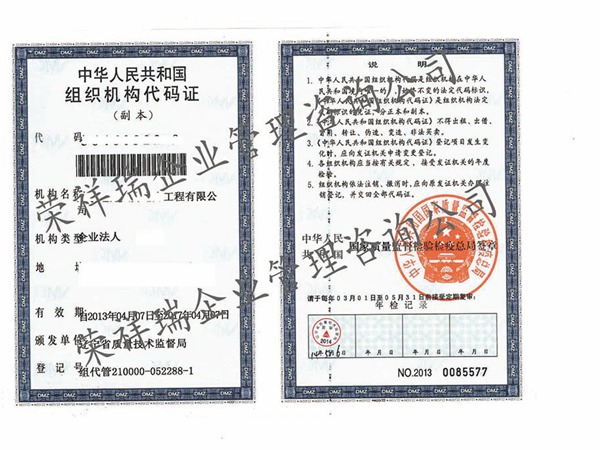 中华人民共和国
组织机构代码证
(副本)
代 码
机构名称
工程有限公
司
机构类型 企业法人
地 址
有效期 自2013年04月07日至2017年04月07日
颁发单位 辽宁省质量技术监督局
登记号 组代管210000-052288-1
说 明
1. 中华人民共和国组织机构代码是组织机构在中华人
代码标识,
《中华人民共和国组织机构代码证》是组织机构法定
分正本和副本。
3. 《中华人民共和国组织机构代码证》不得出租、出借、
冒用、转让、伪造、变造、非法买卖。
4. 《中华人民共和国组织机构代码证》登记项目发生变
化时,应向发证机关申请变更登记。
各组织机构应当按有关规定,接受发证机关的年度
检验。
5. 组织机构依法注销、撤消时,应向原发证机关办理注
销登记,并交回全部代码证。
中华人民
共和国
国家质量监督检验检疫总局签章
请于每年03月01日至05月31日前接受定期复审:
年检记录
2014
年 月 日
年 月 日
年 月 日
NO.2013 0085577
荣祥瑞企业管理咨询公司
荣祥瑞企业管理咨询公司